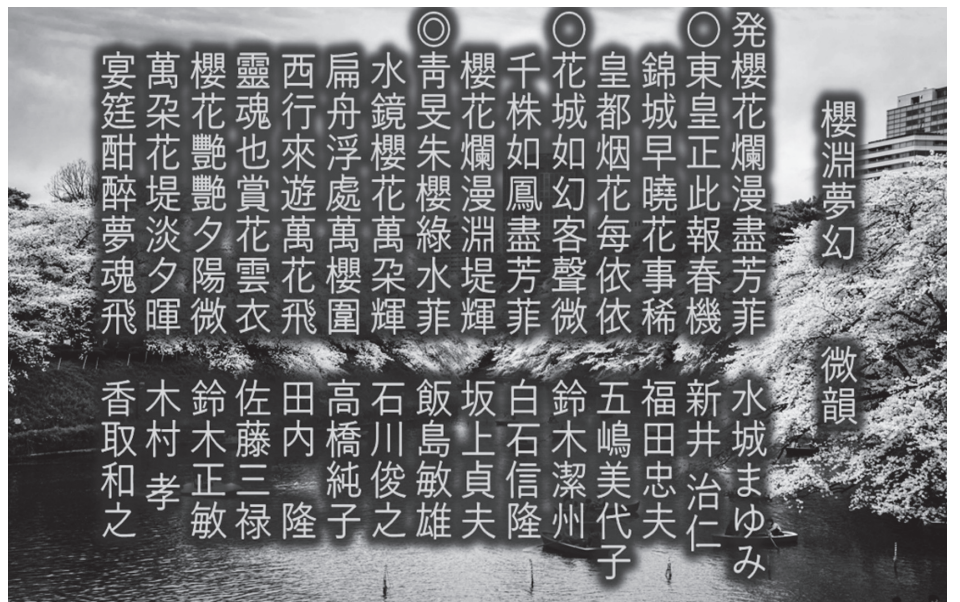 櫻淵夢幻　微韻
発櫻花爛漫盡芳菲　水城まゆみ
○東皇正此報春機　新井治仁
錦城早曉花事稀　福田忠夫
皇都烟花每依依　五嶋美代子
○花城如幻客聲微　鈴木潔州
千株如鳳盡芳菲　白石信隆
櫻花爛漫淵堤輝　坂上貞夫
◎靑旻朱櫻綠水菲　飯島敏雄
水鏡櫻花萬朶輝　石川俊之
扁舟浮處萬櫻圍　高橋純子
西行來遊萬花飛　田内　隆
靈魂也賞花雲衣　佐藤三禄
櫻花艷艷夕陽微　鈴木正敏
萬朶花堤淡夕暉　木村　孝
宴筵酣醉夢魂飛　香取和之